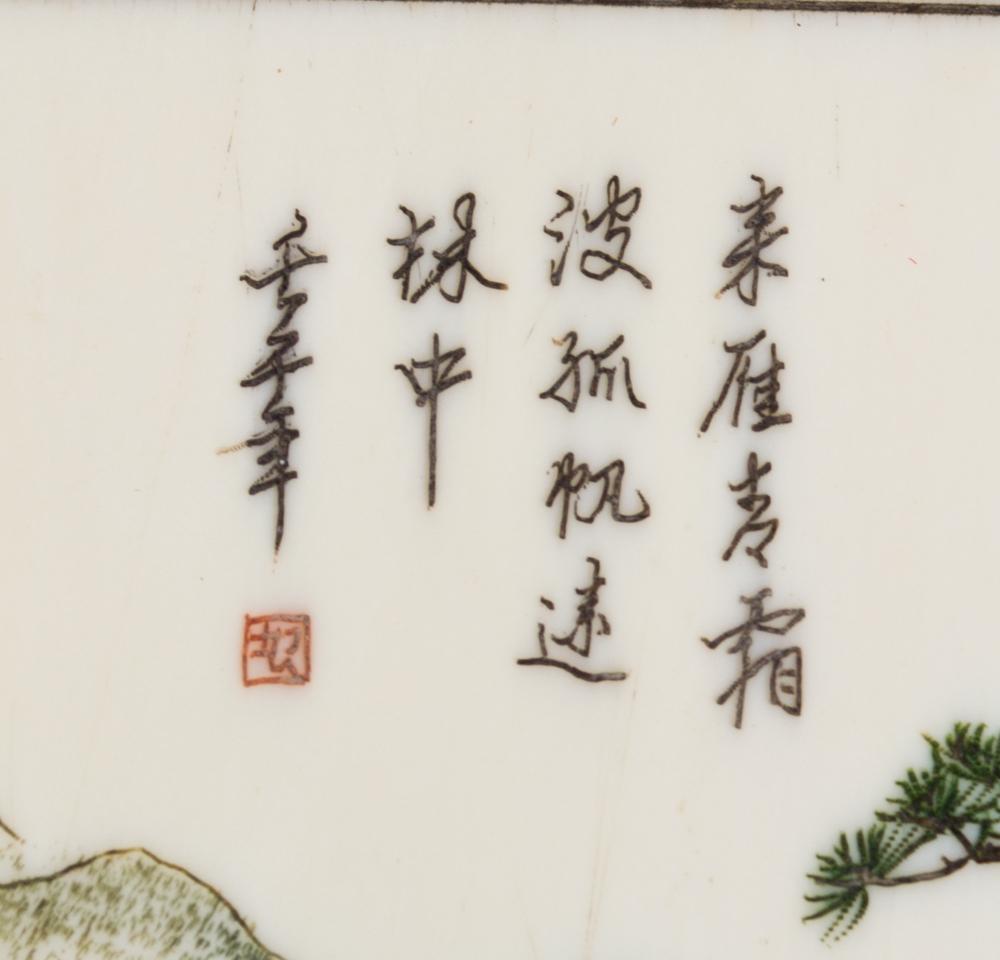 来雁青霜
波孤帆远
林中
壬午年